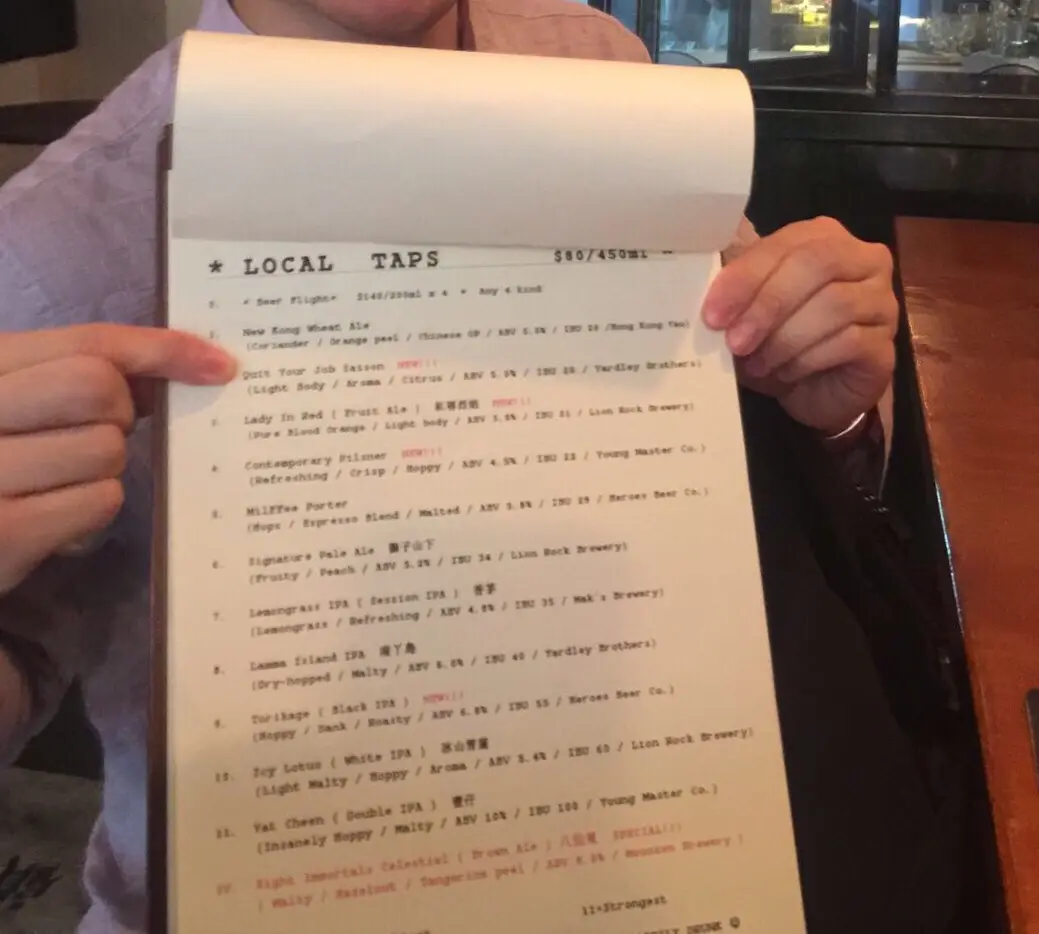 * LOCAL TAPS $80/450ml
0. * Beer Flight* $140/200ml x 4 * Any 4 kind
1. New Kong Wheat Ale
(Coriander / Orange peel / Chinese / ABV / IBU 20 /Hong Kong Yau)
Quit Your Job Saison NEW!!!
(Light Body / Aroma / Citrus / ABV 5.5% / IBU 20 / Yardley Brothers)
3. Lady In Red ( Fruit Ale ) NEW!!!
(Pure Blood Orange / Light body / ABV 5.5% / IBU 21 / Lion Rock Brewery)
4. Contemporary Pilsner NEW!!!
(Refreshing / Crisp / Hoppy / ABV 4.5% / IBU 22 / Young Master Co.)
5. Milffee Porter
(Hops / Espresso Blend / Malted / ABV 5.8% / IBU 29 / Heroes Beer Co.)
6. Signature Pale Ale 獅子山下
(Fruity / Peach / ABV 5.2% / IBU 34 / Lion Rock Brewery)
7. Lemongrass IPA ( Session IPA ) 香茅
(Lemongrass / Refreshing / ABV 4.8% / IBU 35 / Mak's Brewery)
8. Lamma Island IPA 南丫島
(Dry-hopped / Malty / ABV 6.0% / IBU 40 / Yardley Brothers)
9. Torikage ( Black IPA ) NEW!!!
(Hoppy / Dank / Roasty / ABV 6.8% / IBU 55 / Heroes Beer Co.)
10. Icy Lotus ( White IPA ) 冰山雪蓮
(Light Malty / Hoppy / Aroma / ABV 5.4% / IBU 60 / Lion Rock Brewery)
11. Yat Cheen ( Double IPA )
(Insanely Hoppy / Malty / ABV 10% / IBU 100 / Young Master Co.)
12. Eight Immortals Celestial ( Brown Ale ) SPECIAL!!!
( Malty / Hazelnut / Tangerine peel / ABV / Moonzen Brewery )
11=Strongest
DRUNK ☺